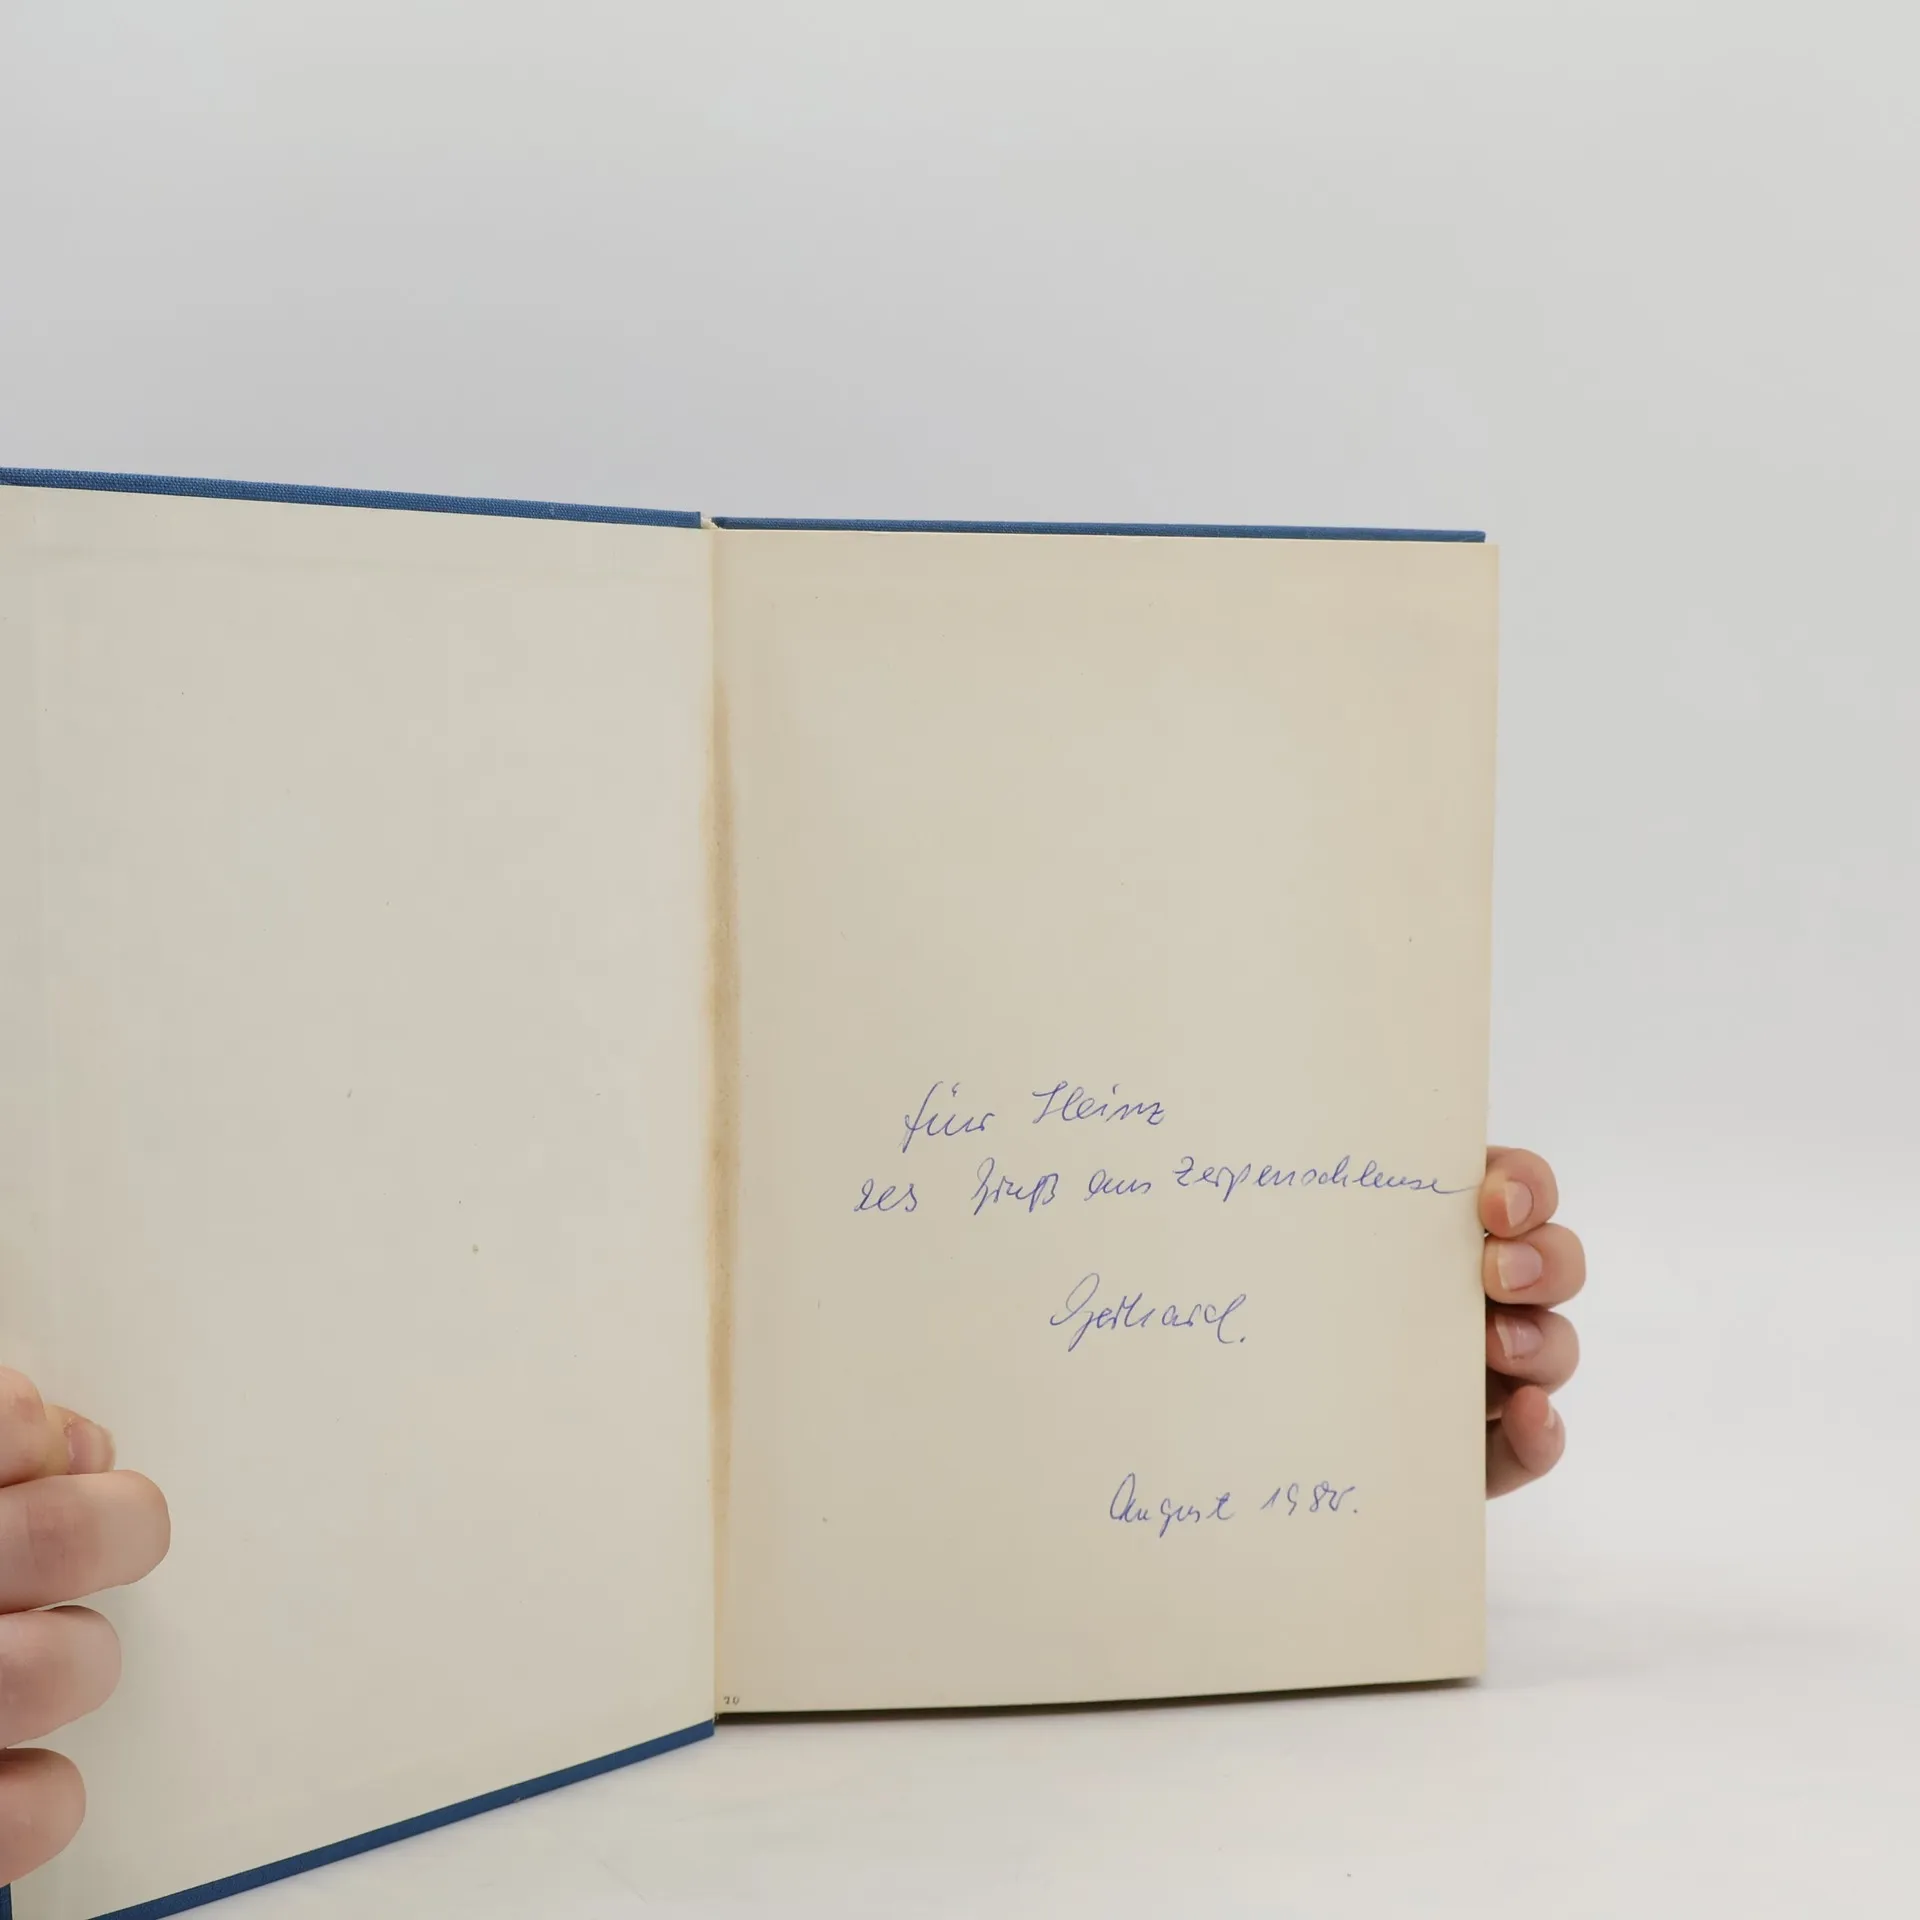 für Heinz
der Gruß aus Zerpenschleuse
Gerhard.
August 1985.
20